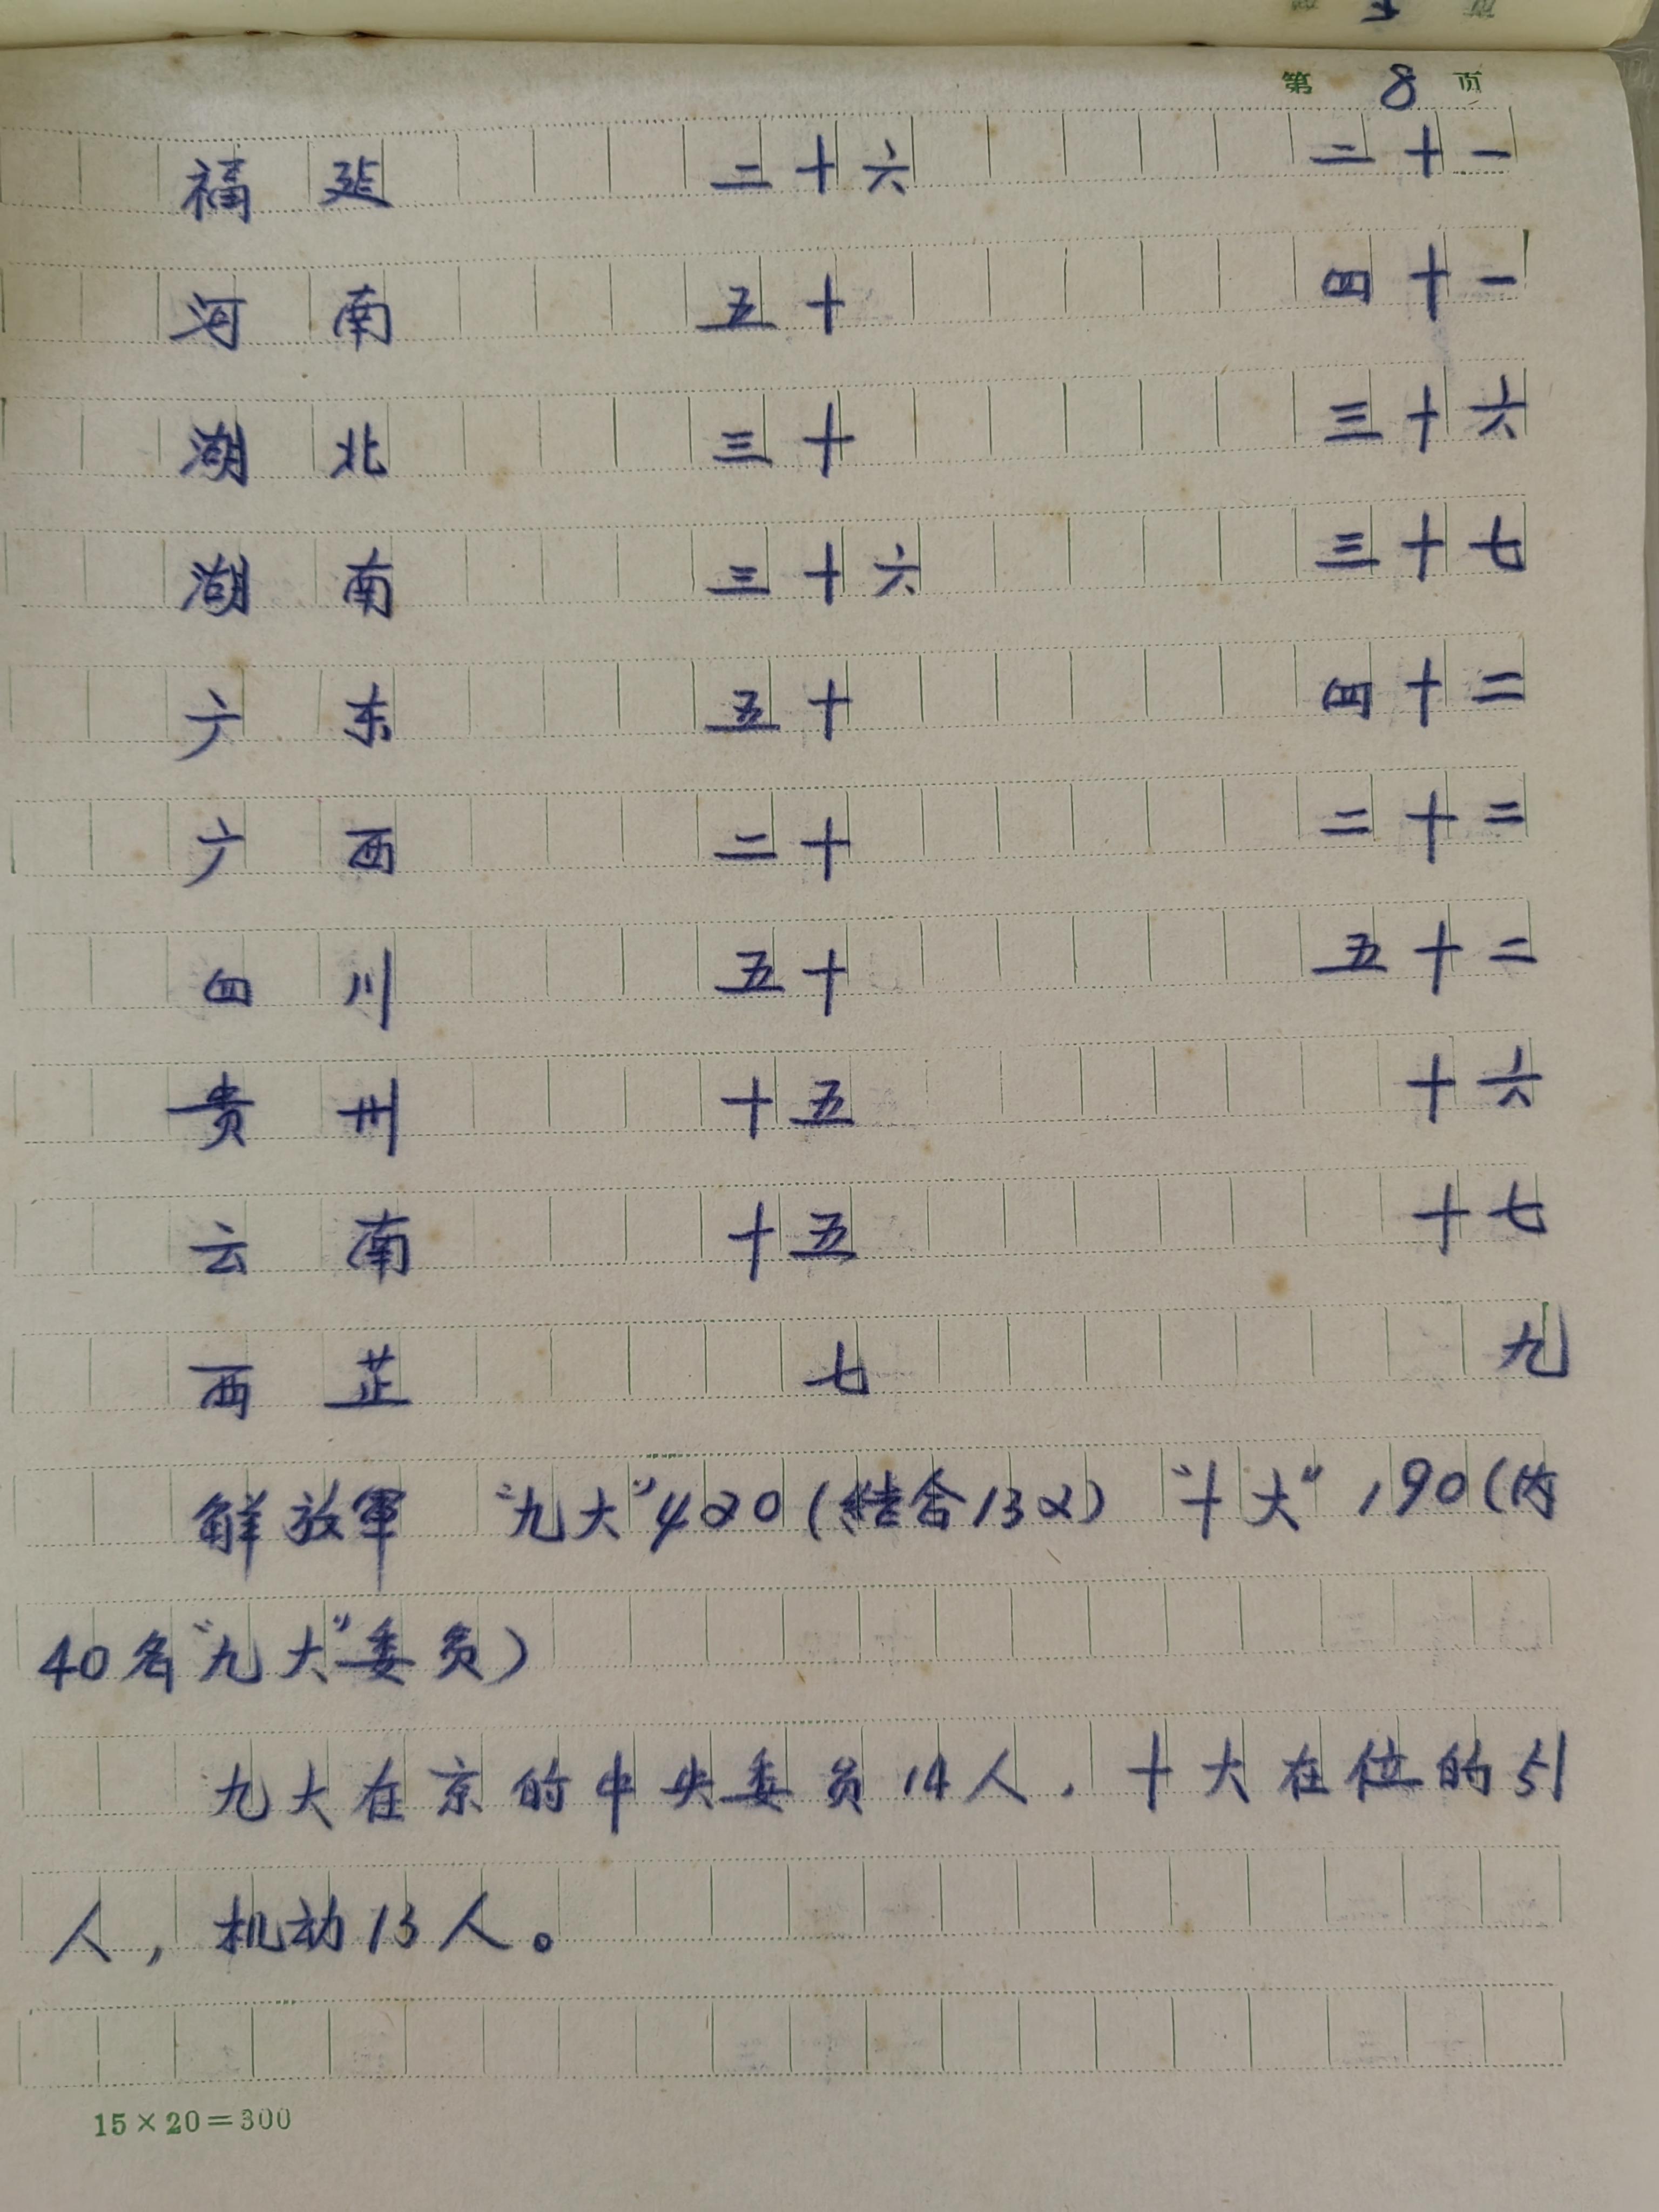 第 8 页
福 延 二十六 二十一
河 南 五十 四十一
湖 北 三十 三十六
湖 南 三十六 三十七
广 东 五十 四十二
广 西 二十 二十二
四 川 五十 五十二
贵 州 十五 十六
云 南 十五 十七
西 芷 七 九
解放軍 “九大”420(结合132) “十大”190(内
40名“九大”委员)
九大在京的中央委员14人. 十大在位的51
人, 机动13人。
15×20=300